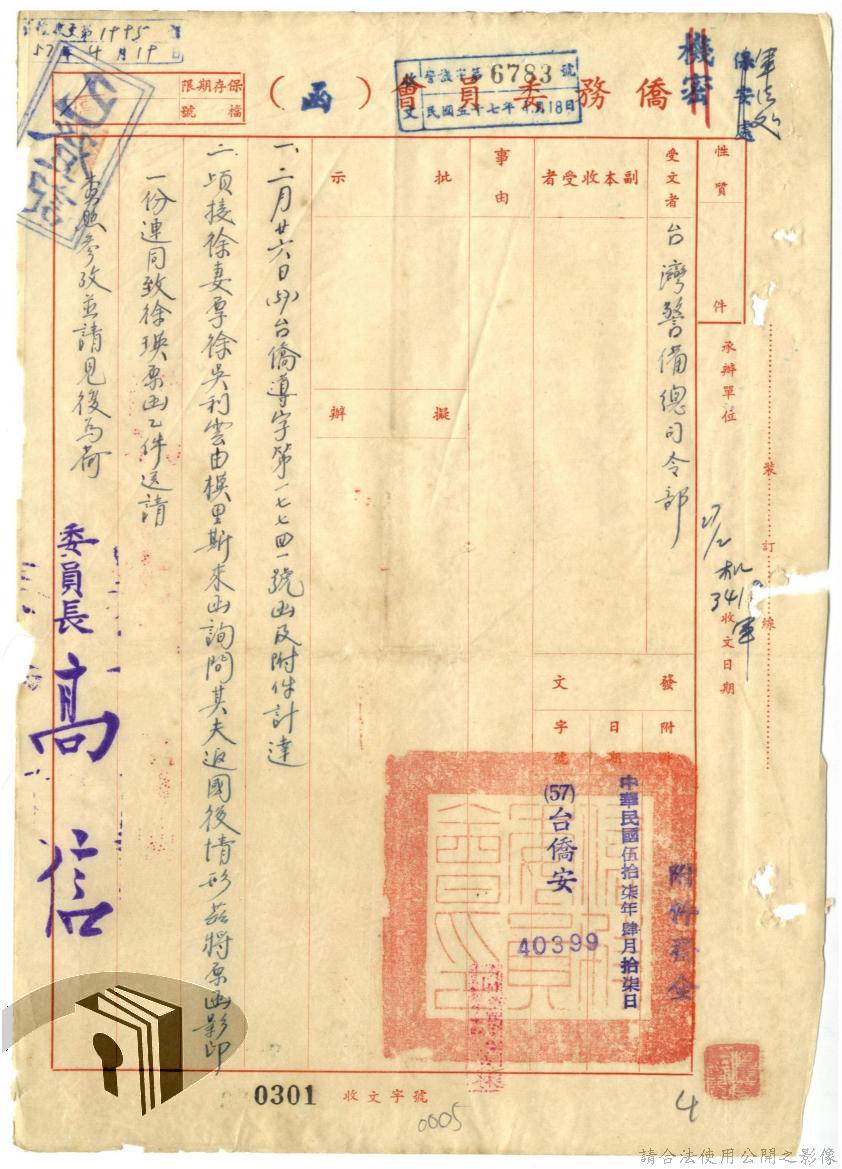 軍法處
保安處
機密
僑務委員會（函）
收文
警議字第6783號
民國五十七年4月18日
保存期限
檔號
收文第1995
57年4月19日
性質
件
受文者
台灣警備總司令部
副本收受者
事由
批示
擬辦
承辦單位
收文日期
裝訂線
27/2
机
341
軍
發文
附件
日期
字號
中華民國伍拾柒年肆月拾柒日
(57)台僑安
40399
一、二月廿六日(57)台僑導字第一七七四一號函及附件計達
二、頃接徐妻廖徐吳利雲由模里斯來函詢問其夫返國後情形茲將原函影印
一份連同致徐瑛原函乙件送請
查照參攷並請見復為荷
委員長 高信
0301
收文字號
0005
4
請合法使用公開之影像